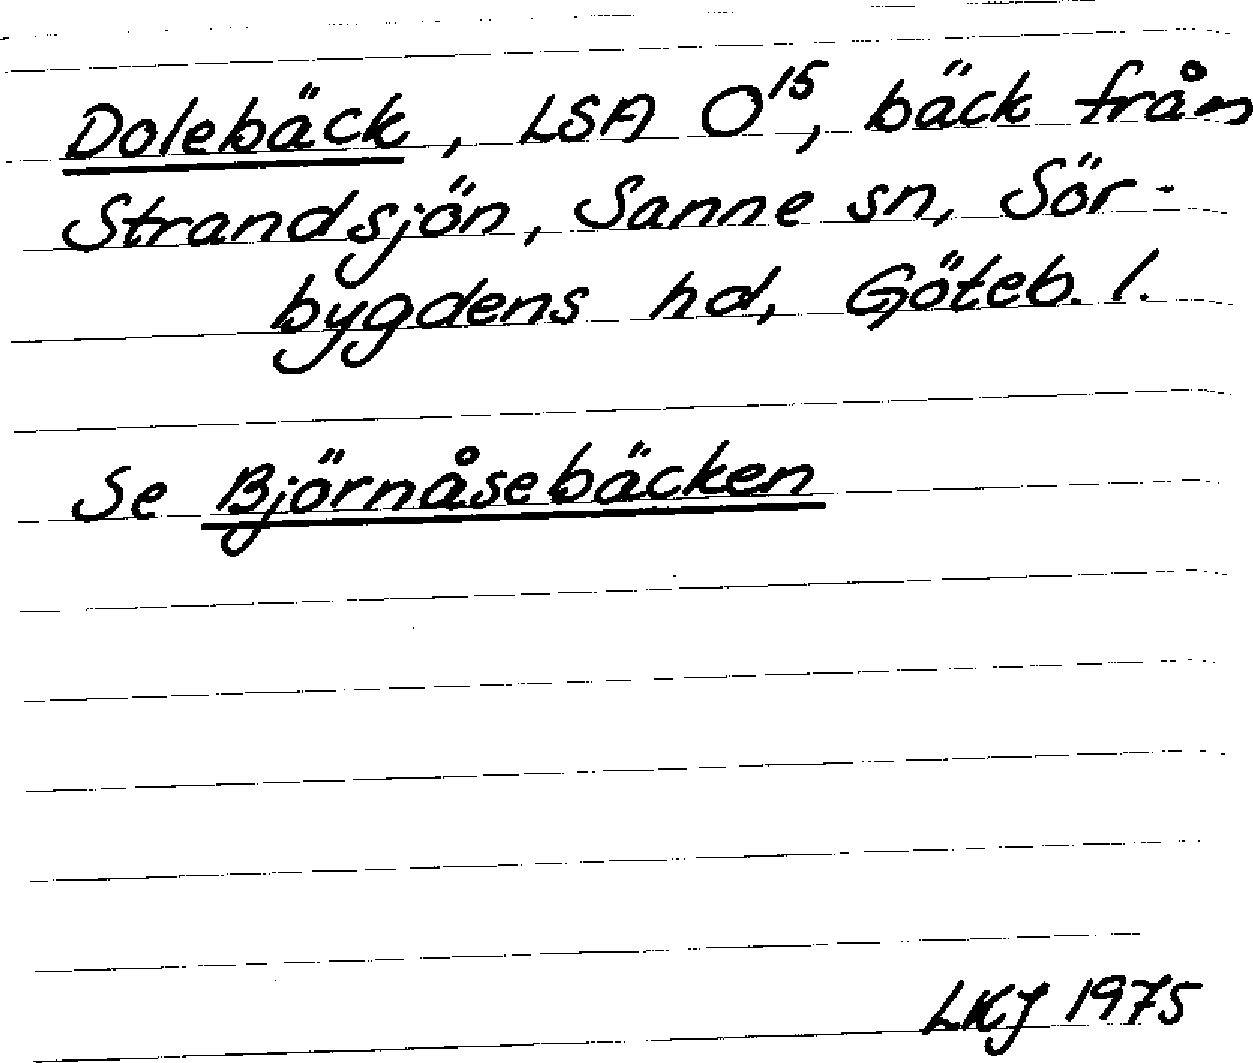 Dolebäck, LSA O¹⁵, bäck från
Strandsjön, Sanne sn, Sör-
bygdens hd, Göteb. l.
Se Björnåsebäcken
LKJ 1975